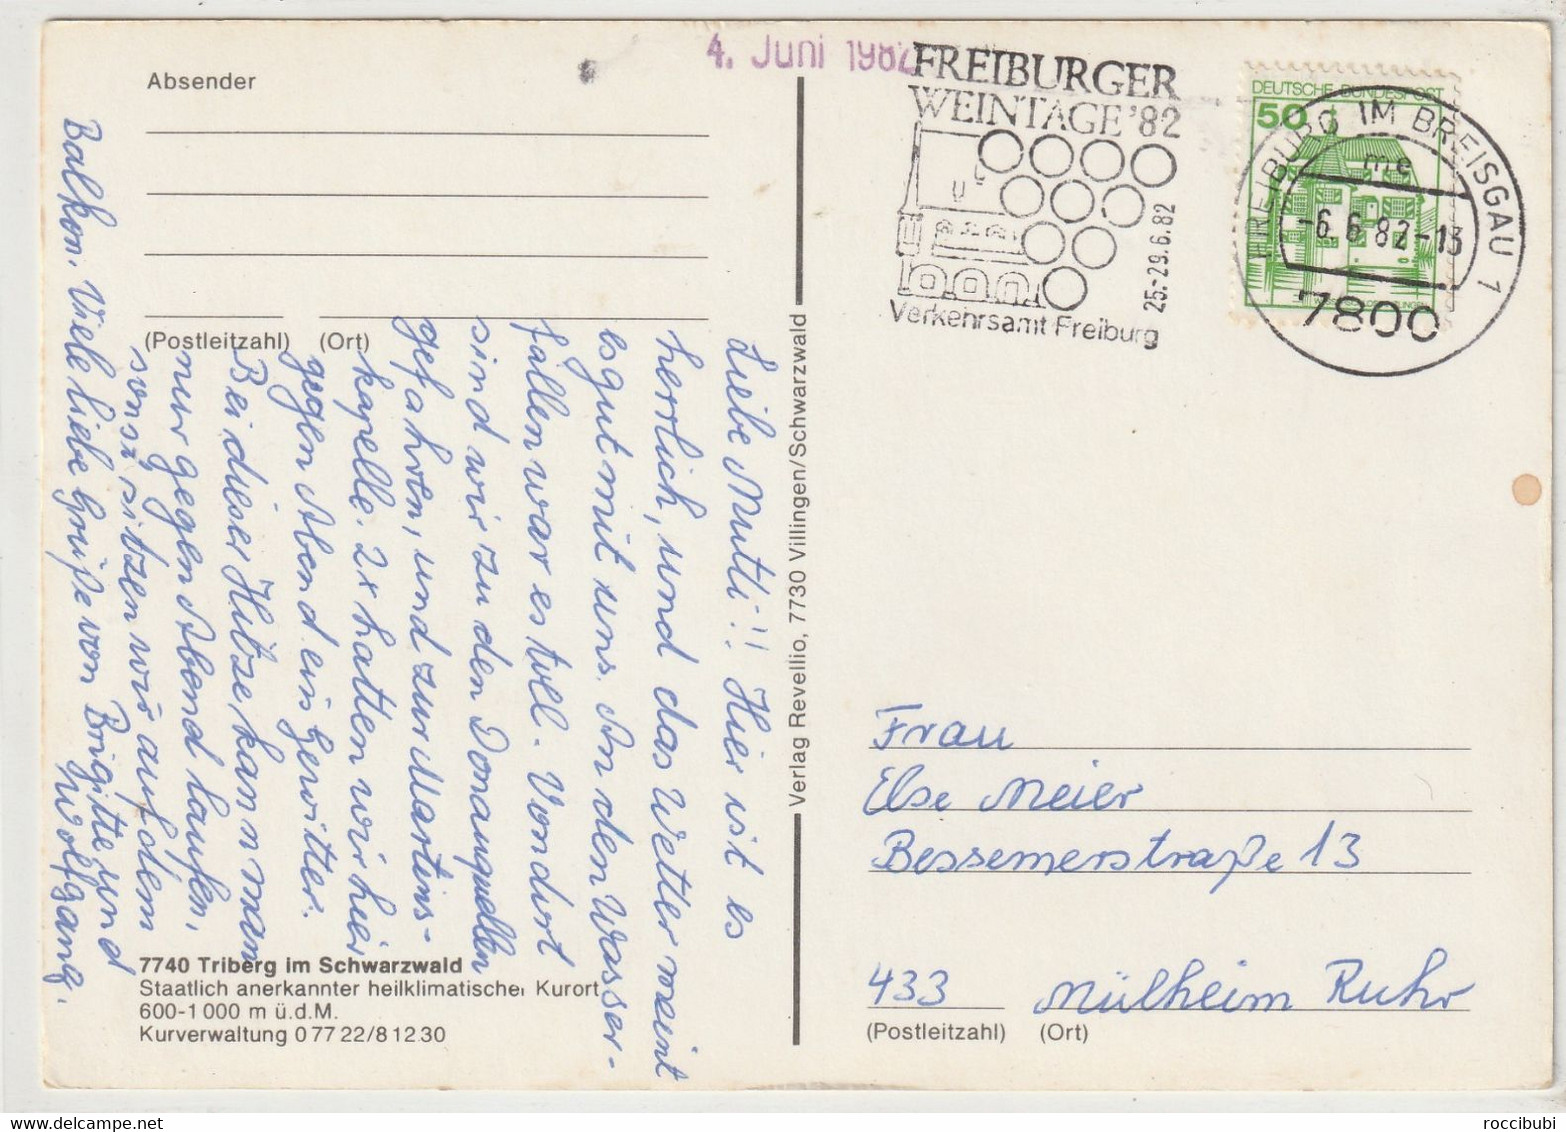 Absender
(Postleitzahl) (Ort)
4. Juni 1982
FREIBURGER
WEINTAGE '82
25.-29.6.82
Verkehrsamt Freiburg
DEUTSCHE BUNDESPOST
50
FREIBURG IM BREISGAU 1
me
-6.6.82-13
7800
Liebe Mutti!! Hier ist es
herrlich, und das Wetter meint
es gut mit uns. An den Wasser-
fällen war es toll. Von dort
sind wir zu den Donauquellen
gefahren, und zur Martins-
kapelle. 2x hatten wir hier
gegen Abend ein Gewitter.
Bei dieser Hitze, kann man
nur gegen Abend laufen,
sonst sitzen wir auf dem
Balkon. Viele liebe Grüße von Brigitte und
Wolfgang.
Verlag Revellio, 7730 Villingen/Schwarzwald
Frau
Else Meier
Bessemerstraße 13
433 Mülheim Ruhr
(Postleitzahl) (Ort)
7740 Triberg im Schwarzwald
Staatlich anerkannter heilklimatischer Kurort
600-1000 m ü.d.M.
Kurverwaltung 07722/81230
roccibubi